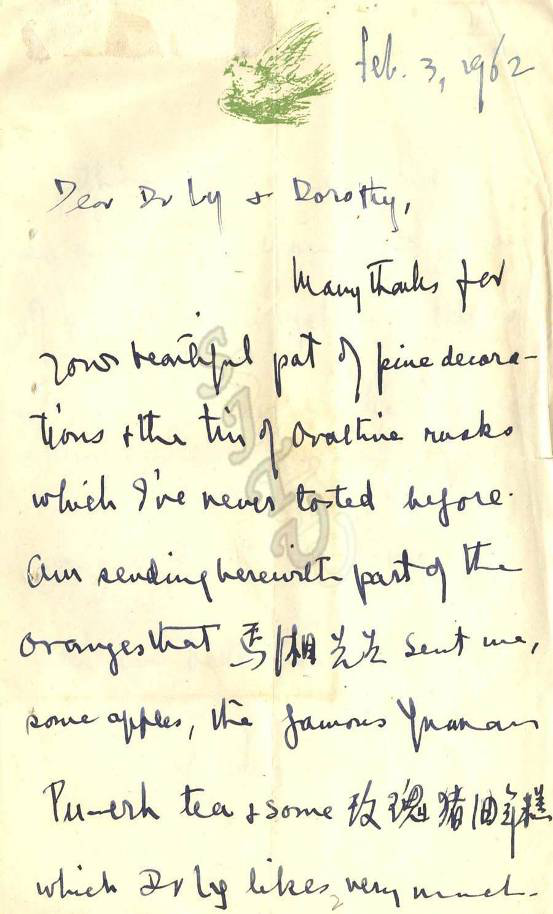 Feb. 3, 1962
Dear Dr Ly & Dorothy,
Many thanks for
your beautiful pot of pine decora-
tions & the tin of Ovaltine rusks
which I've never tasted before.
Am sending herewith part of the
oranges that 馬湘先生 sent me,
some apples, the famous Yunnan
Pu-erh tea & some 玫瑰豬油年糕
which Dr Ly likes very much.